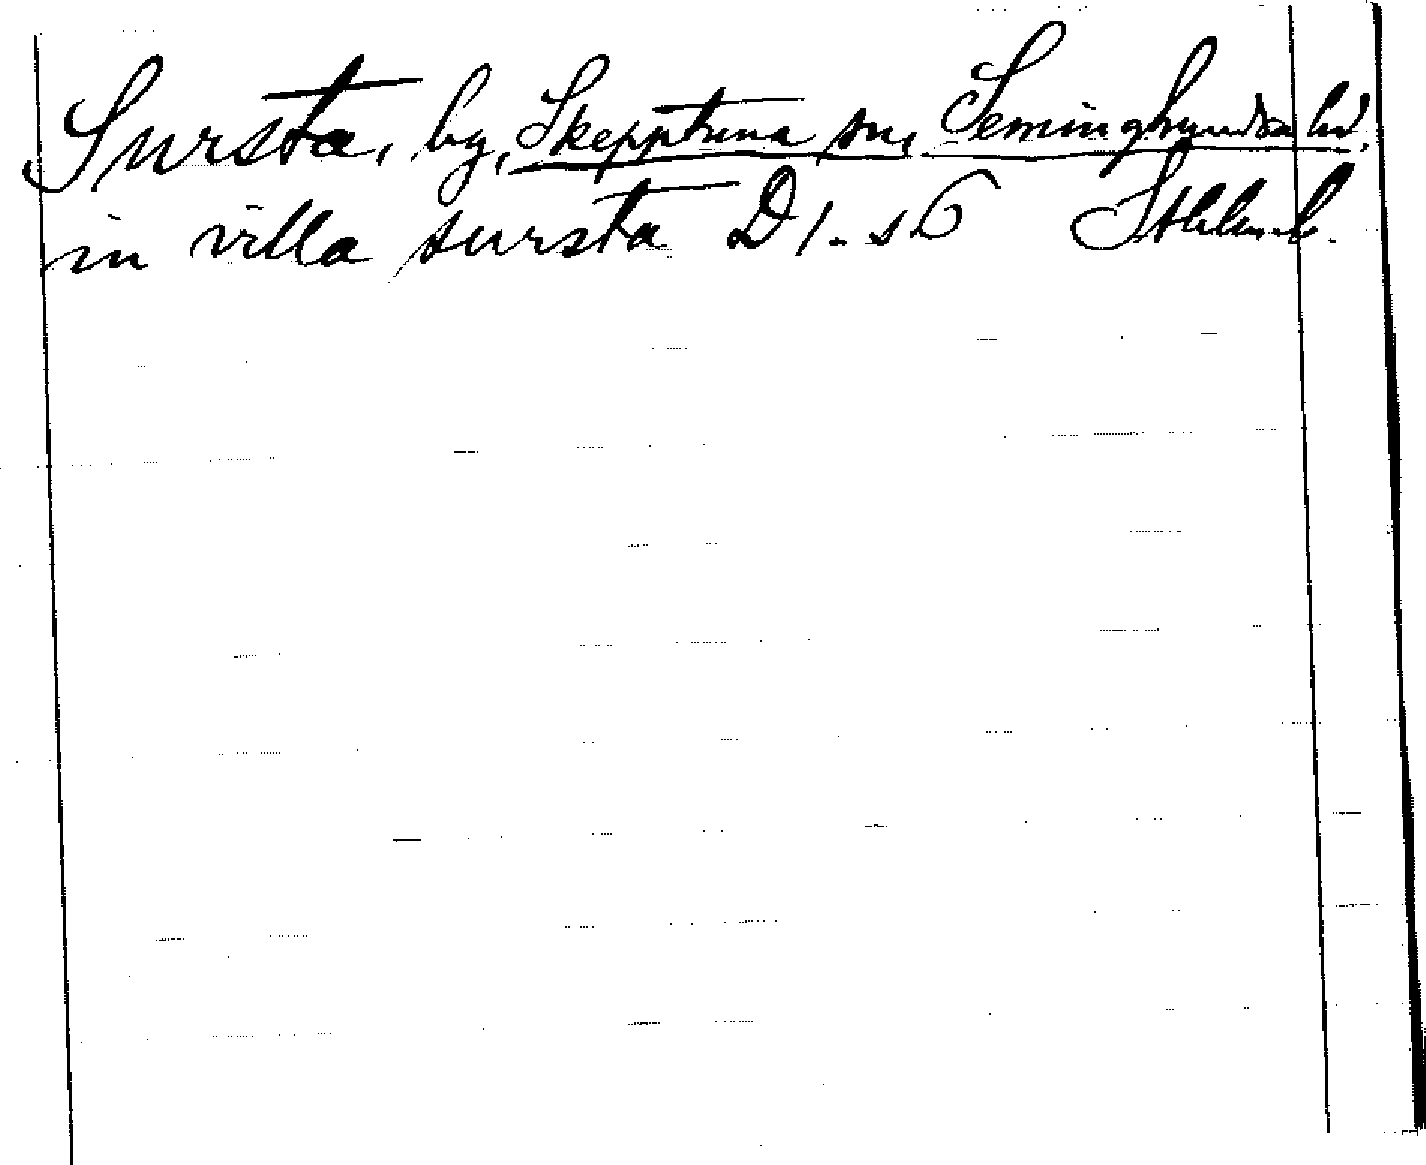 Sursta, by, Skepptuna sn, Seminghundra hd,
in villa sursta D 1. s 6 Sthlms l.